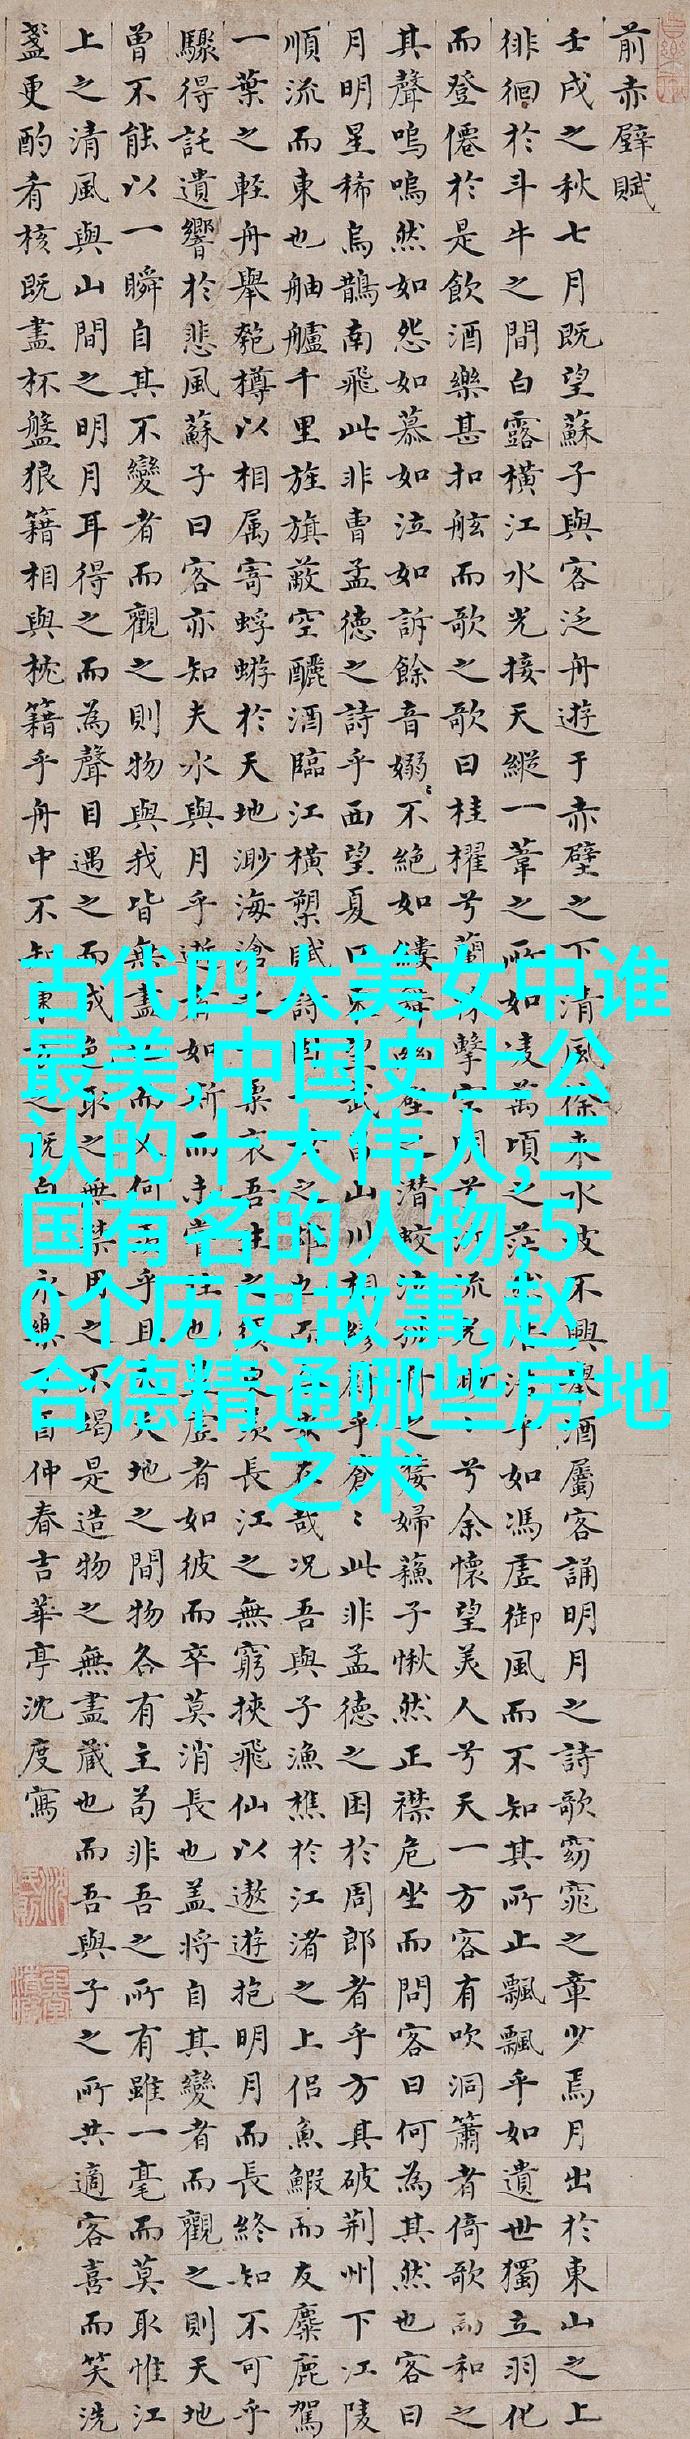 前赤壁賦
壬戌之秋七月既望蘇子與客泛舟遊于赤壁之下清風徐來水波不興舉酒屬客誦明月之詩歌窈窕之章少焉月出於東山之上
徘徊於斗牛之間白露橫江水光接天縱一葦之所如凌萬頃之茫然浩乎如馮虛御風而不知其所止飄飄乎如遺世獨立羽化
而登僊於是飲酒樂甚扣舷而歌之歌曰桂櫂兮蘭槳擊空明兮泝流光渺〻兮余懷望美人兮天一方客有吹洞簫者倚歌而和之
其聲嗚嗚然如怨如慕如泣如訴餘音嫋〻不絕如縷舞幽壑之潛蛟泣孤舟之嫠婦蘓子愀然正襟危坐而問客曰何為其然也客曰
月明星稀烏鵲南飛此非曹孟德之詩乎西望夏口東望武昌山川相繆鬱乎蒼〻此非孟德之困於周郎者乎方其破荆州下江陵
順流而東也舳艫千里旌旗蔽空釃酒臨江橫槊賦詩固一世之雄也而今安在哉況吾與子漁樵於江渚之上侶魚鰕而友麋鹿駕
一葉之輕舟舉匏樽以相属寄蜉蝣於天地渺海滄之一粟哀吾生之須臾羨長江之無窮挾飛仙以遨遊抱明月而長終知不可乎
驟得託遺響於悲風蘇子曰客亦知夫水與月乎逝者如斯而未嘗往也盈虛者如彼而卒莫消長也蓋將自其變者而觀之則天地
曾不能以一瞬自其不變者而觀之則物與我皆無盡也而又何羨乎且夫天地之間物各有主苟非吾之所有雖一毫而莫取惟江
上之清風與山間之明月耳得之而為聲目遇之而成色取之無禁用之不竭是造物之無盡藏也而吾與子之所共適客喜而笑洗
盞更酌肴核既盡杯盤狼籍相與枕籍乎舟中不知東方之既白
永樂丁酉仲春吉華亭沈度寫
古代四大美女中谁
最美,中国史上公
认的十大伟人,三
国有名的人物,5
0个历史故事,赵
合德精通哪些房地
之术